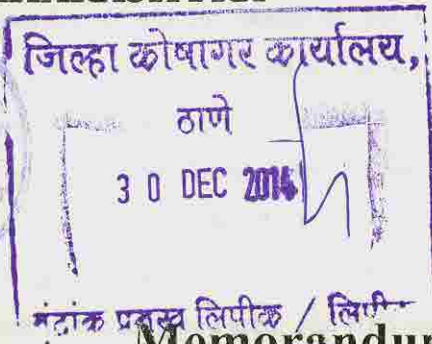 जिल्हा कोषागर कार्यालय,
ठाणे
3 0 DEC 2014
मुद्रांक प्रमुख लिपीक / लिपीक
Memorandum